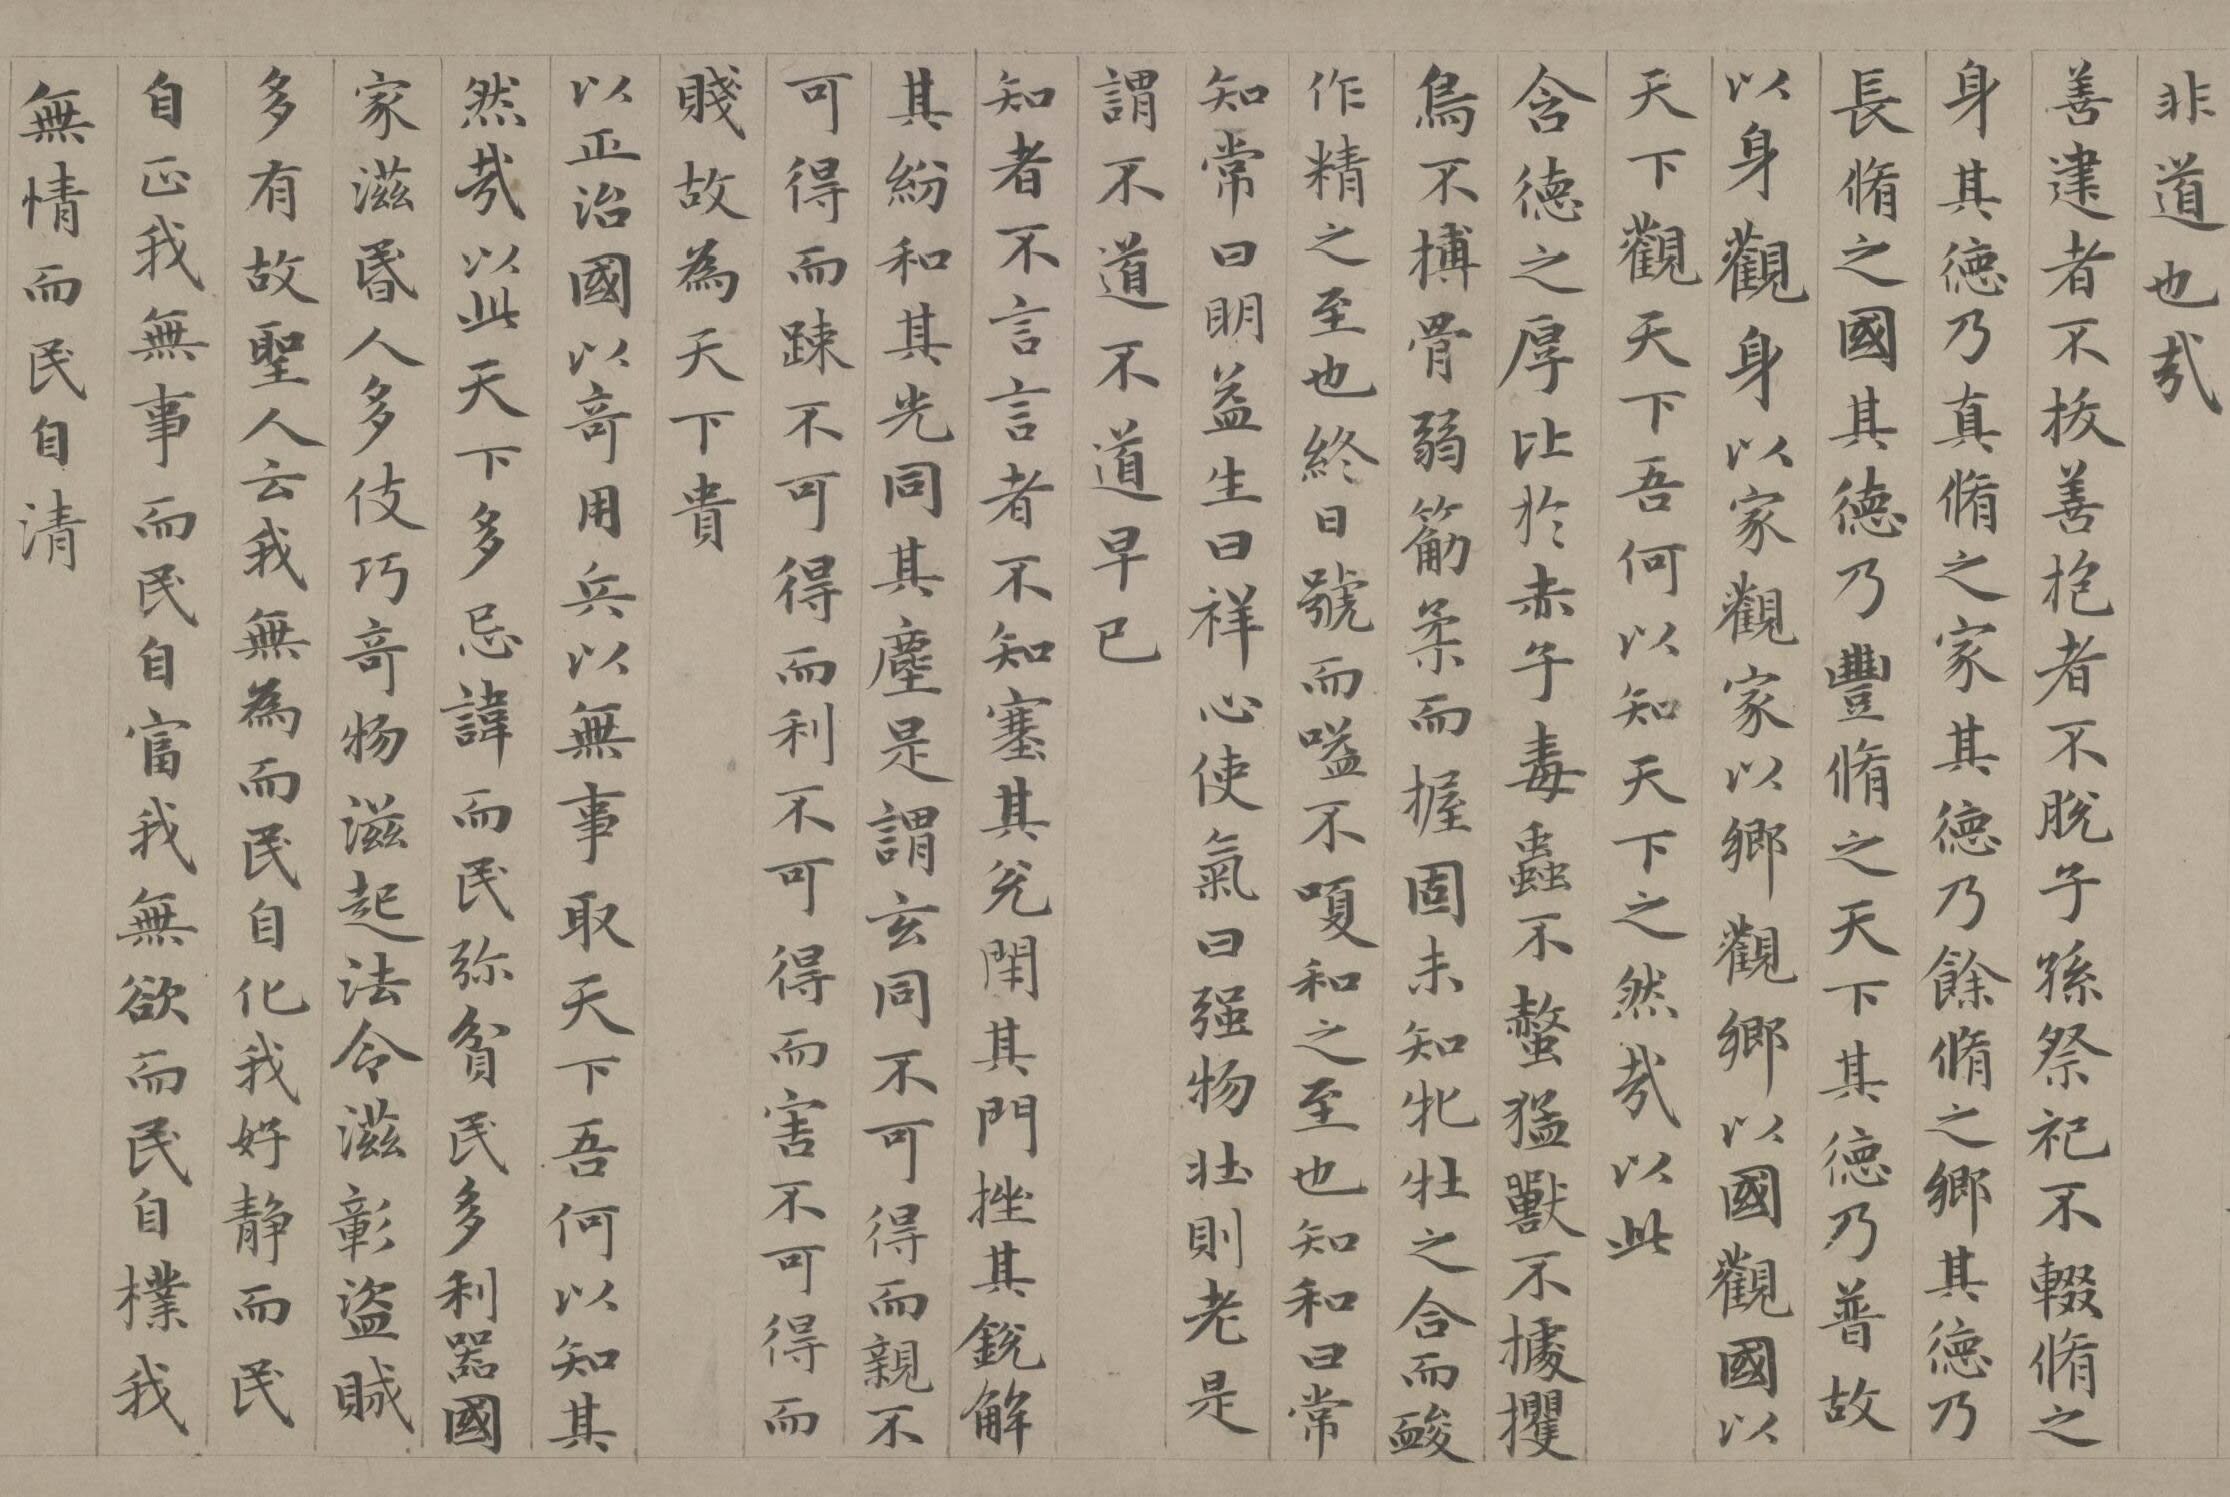 非道也㢤
善建者不拔善抱者不脫子孫祭祀不輟脩之
身其德乃真脩之家其德乃餘脩之鄉其德乃
長脩之國其德乃豐脩之天下其德乃普故
以身觀身以家觀家以鄉觀鄉以國觀國以
天下觀天下吾何以知天下之然㢤以此
含德之厚比於赤子毒蟲不螫猛獸不據攫
鳥不搏骨弱筋柔而握固未知牝牡之合而䘒
作精之至也終日號而嗌不嗄和之至也知和曰常
知常曰明益生曰祥心使氣曰强物壯則老是
謂不道不道早已
知者不言言者不知塞其兊閉其門挫其銳解
其紛和其光同其塵是謂玄同不可得而親不
可得而踈不可得而利不可得而害不可得而
賤故為天下貴
以正治國以竒用兵以無事取天下吾何以知其
然㢤以此天下多忌諱而民弥貧民多利器國
家滋昬人多伎巧竒物滋起法令滋彰盜賊
多有故聖人云我無為而民自化我好靜而民
自正我無事而民自富我無欲而民自樸我
無情而民自清